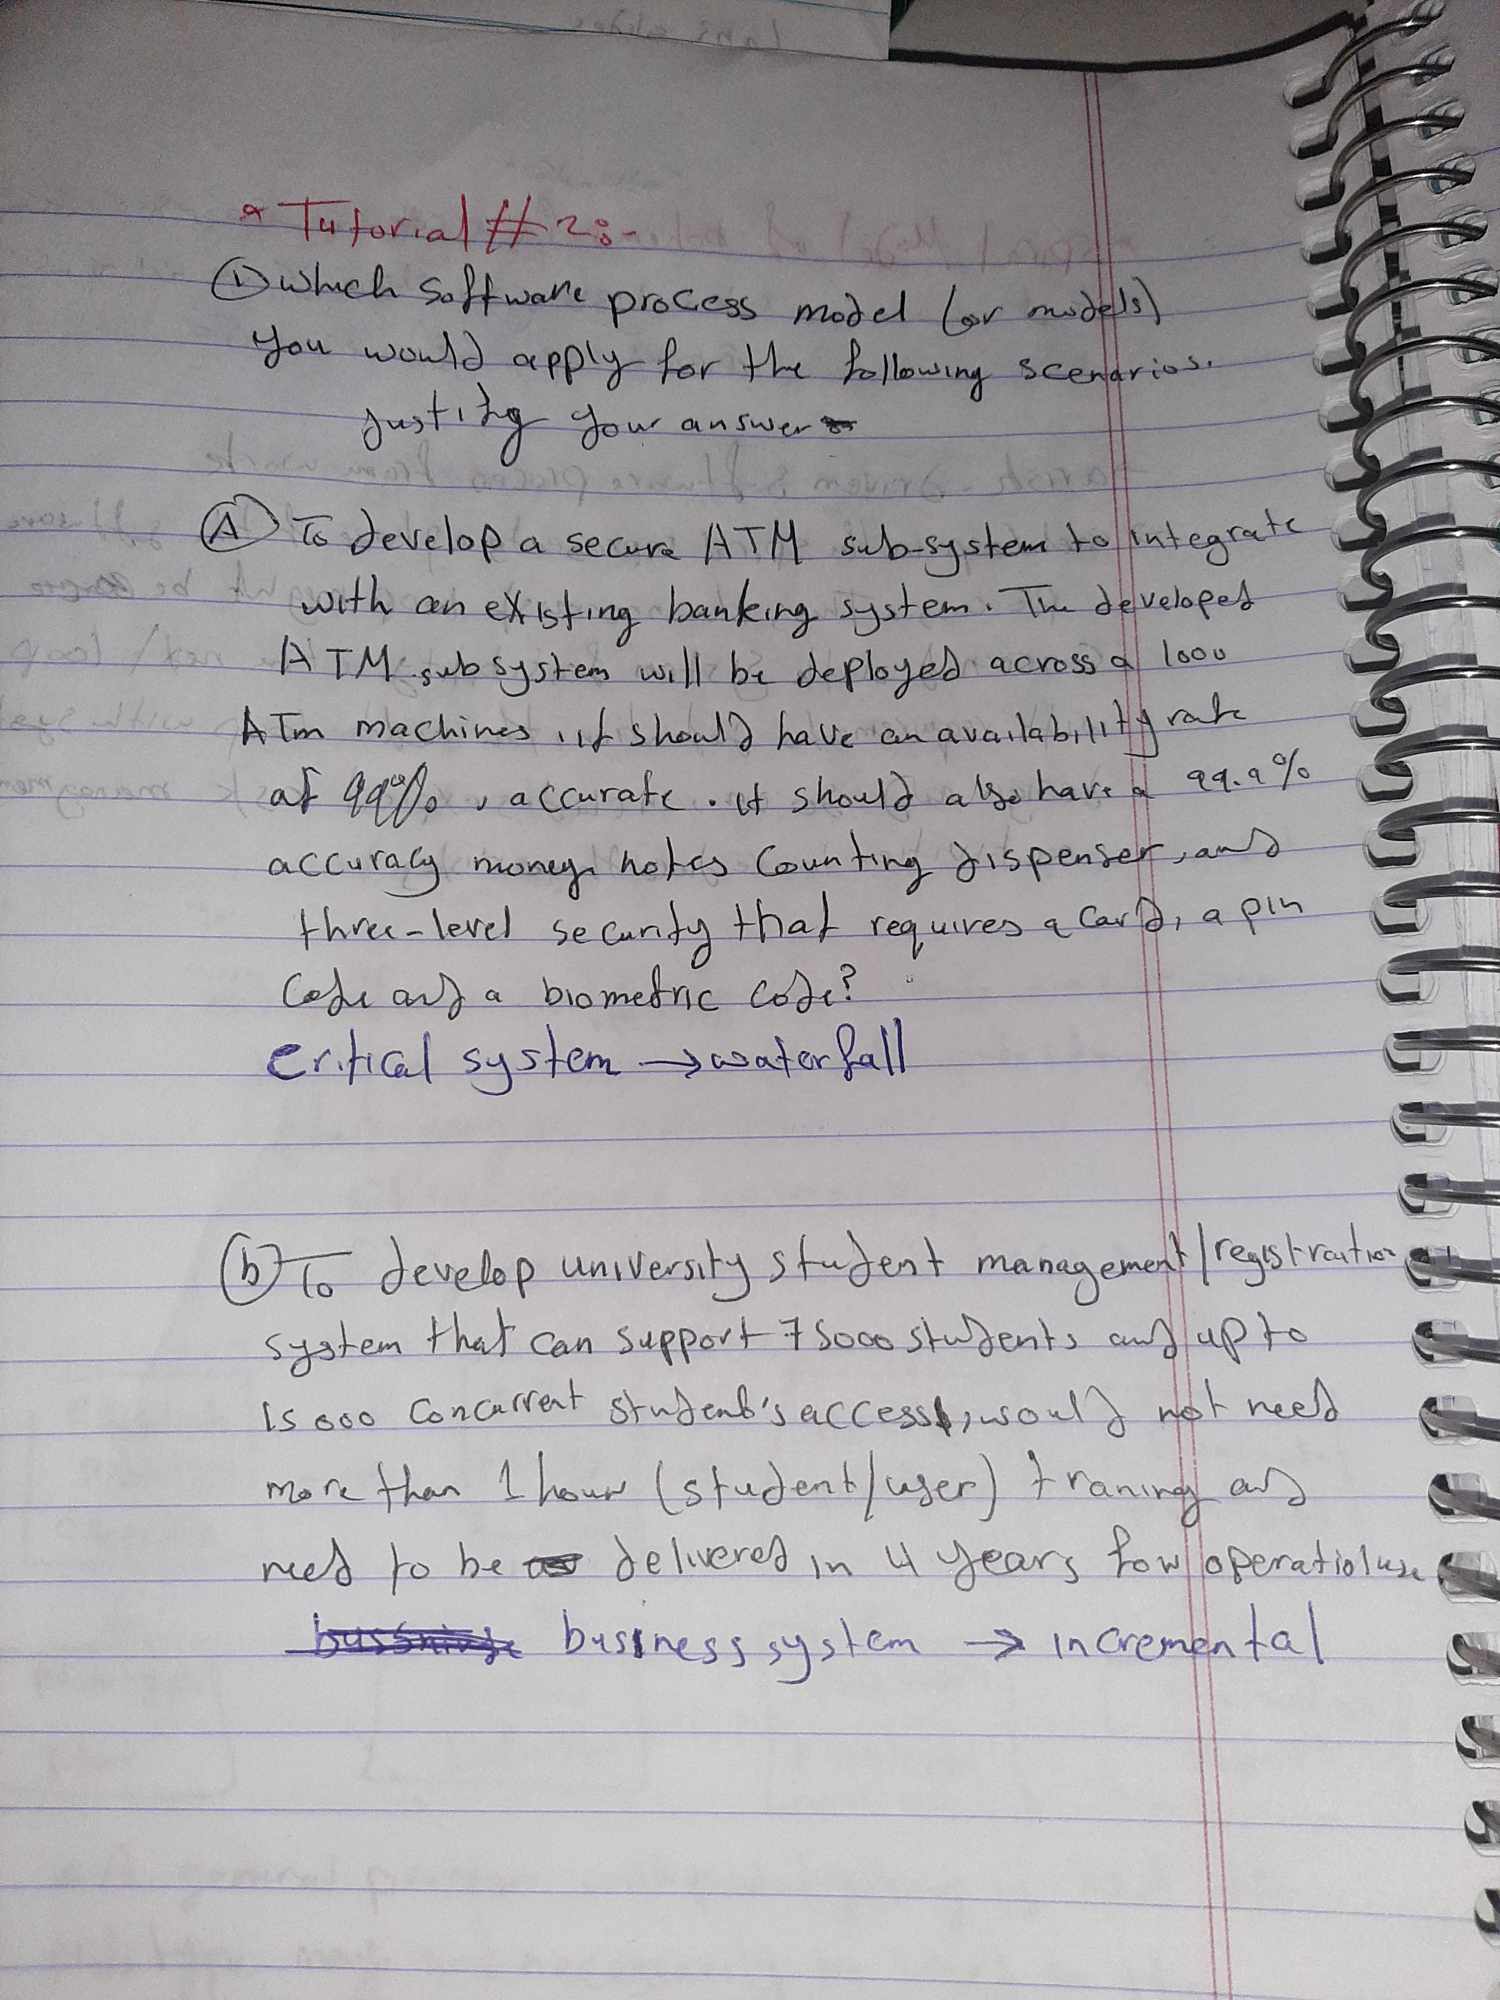 * Tutorial # 2:-
① Which software process model (or models)
you would apply for the following scenarios.
Justify your answer
Ⓐ To develop a secure ATM sub-system to integrate
with an existing banking system. The developed
ATM subsystem will be deployed across a 1000
ATm machines, it should have an availability rate
of 99%, accurate. it should also have a 99.9%
accuracy money notes counting dispenser, and
three-level security that requires a card, a pin
Code and a biometric code?
Critical system → waterfall
ⓑ To develop university student management/registration
system that can support 75000 students and up to
15000 concurrent student's access, would not need
more than 1 hour (student/user) traning and
need to be delivered in 4 years for operatioluse
business system → incremental